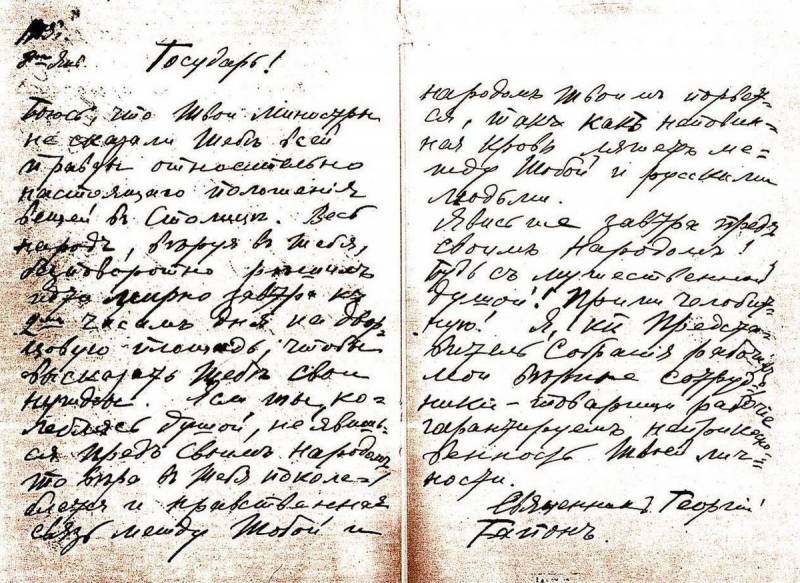 1905,
8го Янв.
Государь!
Боюсь, что Твои министры
не сказали Тебѣ всей
правды относительно
настоящаго положенія
вещей въ Столицѣ. Весь
народъ, вѣруя въ Тебя,
безповоротно рѣшилъ
мирно завтра къ
2мъ часамъ дня на Двор-
цовую площадь, чтобы
высказать Тебѣ свои
нужды. Если ты, ко-
леблясь душой, не явишь-
ся предъ Своимъ народомъ,
то вѣра въ Тебя поколе-
блется и нравственная
связь между Тобой и
народомъ Твоимъ порвет-
ся, такъ какъ неповин-
ная кровь ляжетъ ме-
жду Тобой и русскими
людьми.
Явись же завтра предъ
своимъ Народомъ!
Будь съ мужественной
душой! Прими челобит-
ную! Я, Предста-
витель Собранія рабочихъ,
мои вѣрные сотруд-
ники - товарищи рабочіе
гарантируемъ неприкосно-
венность Твоей лич-
ности.
Священникъ Георгій
Гапонъ.